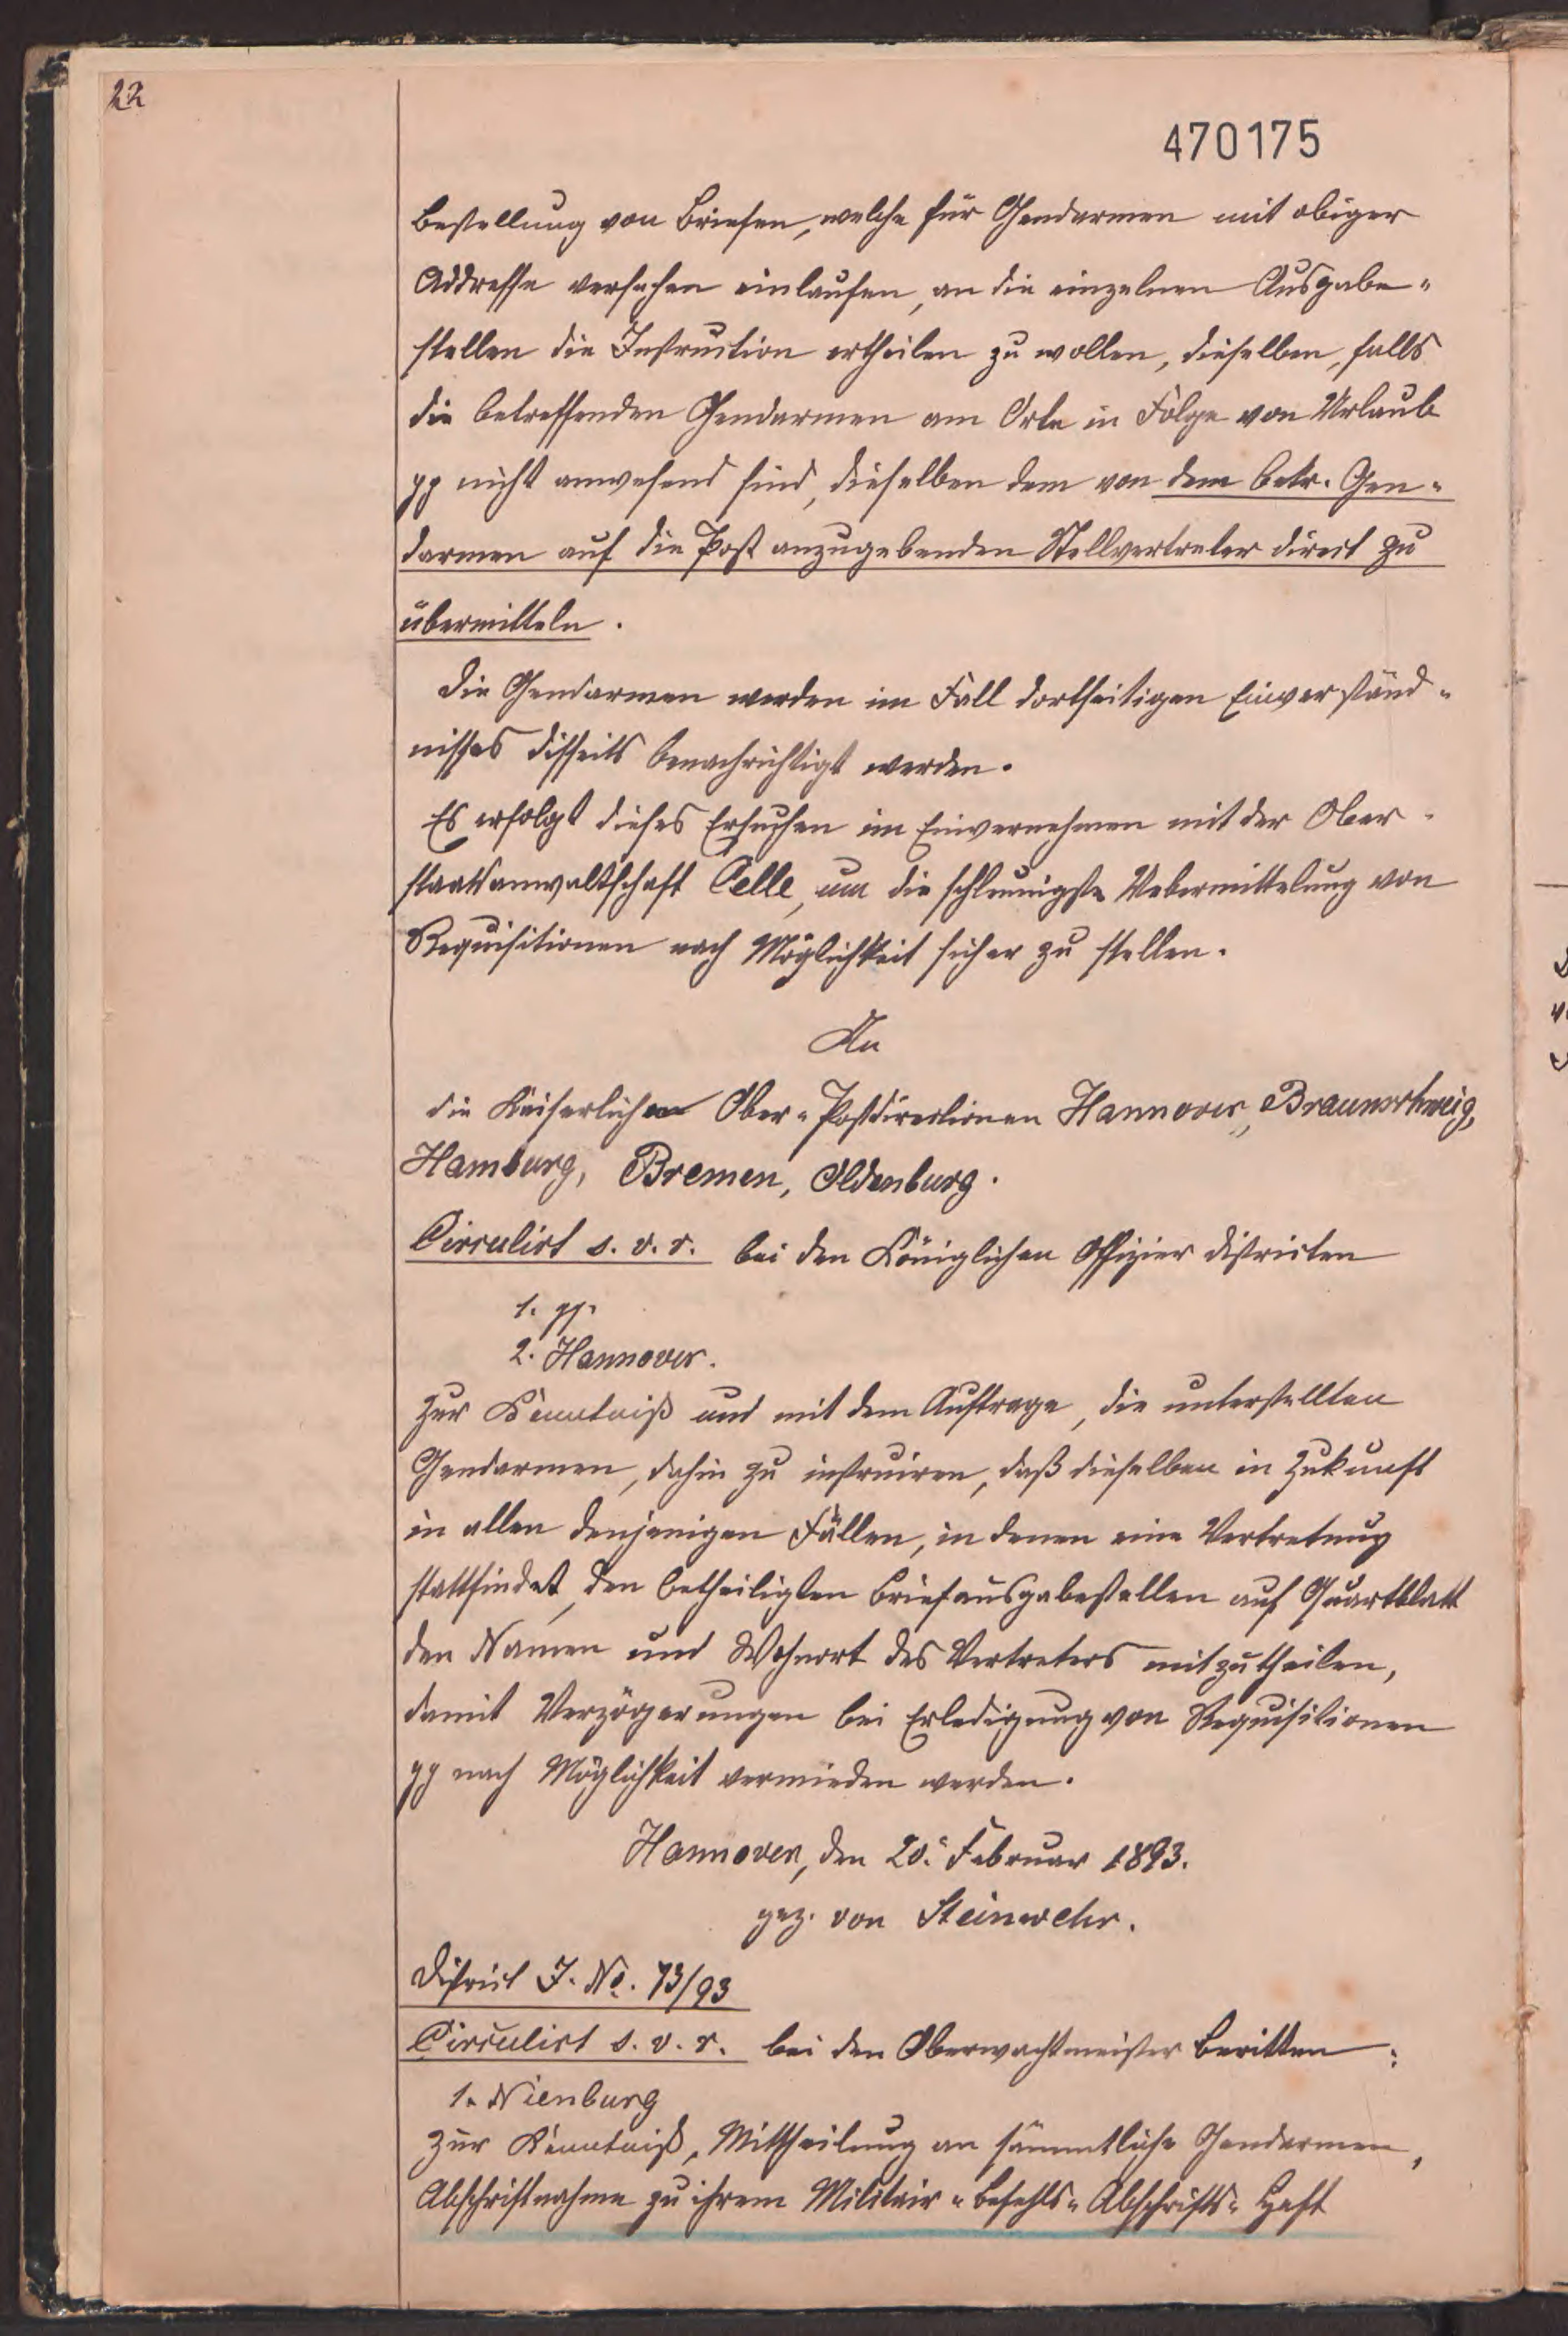 22
470175
Bestellung von Briefen, welche für Gendarmen mit obiger
Addresse versehen einlaufen, an die einzelnen Ausgabe-
stellen die Instruction ertheilen zu wollen, dieselben, falls
die betreffenden Gendarmen am Orte in Folge von Urlaub
pp nicht anwesend sind, dieselben dem von dem betr. Gen-
darmen auf die Post anzugebenden Stellvertreter direct zu
übermitteln.
Die Gendarmen werden im Fall dortseitigen Einverständ-
nisses disseits benachrichtigt werden.
Es erfolgt dieses Ersuchen im Einvernehmen mit der Ober-
staatsanwaltschaft Celle, um die schleunigste Uebermittelung von
Requisitionen nach Möglichkeit sicher zu stellen.
An
die Kaiserlichen Ober-Postdirectionen Hannover, Braunschweig,
Hamburg, Bremen, Oldenburg.
Circulirt s. v. r. bei den Königlichen Offizier Districten
1. pp.
2. Hannover.
zur Kenntniß und mit dem Auftrage, die unterstellten
Gendarmen, dahin zu instruiren, daß dieselben in Zukunft
in allen denjenigen Fällen, in denen eine Vertretung
stattfindet, den betheiligten Briefausgabestellen auf Quartblatt
den Namen und Wohnort des Vertreters mitzutheilen,
damit Verzögerungen bei Erledigung von Requisitionen
pp nach Möglichkeit vermieden werden.
Hannover, den 20. Februar 1893.
gez. von Steinwehr.
District J. No. 73/93
Circulirt s. v. r. bei den Oberwachtmeister Beritten:
1. Nienburg
zur Kenntniß, Mittheilung an sämmtliche Gendarmen,
Abschriftnahme zu ihrem Militair-Befehls-Abschrifts-Heft